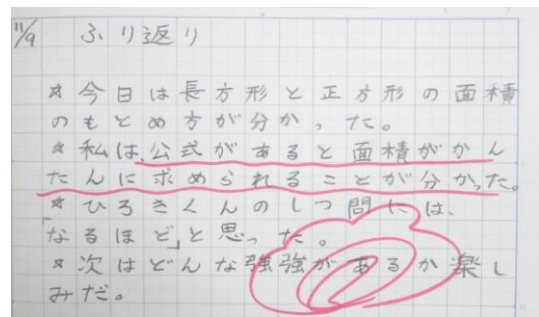 11/9 ふり返り
☆今日は長方形と正方形の面積
のもとめ方が分かった。
☆私は、公式があると面積がかん
たんに求められることが分かった。
☆ひろきくんのしつ問には、
「なるほど」と思った。
☆次はどんな強強があるか楽し
みだ。